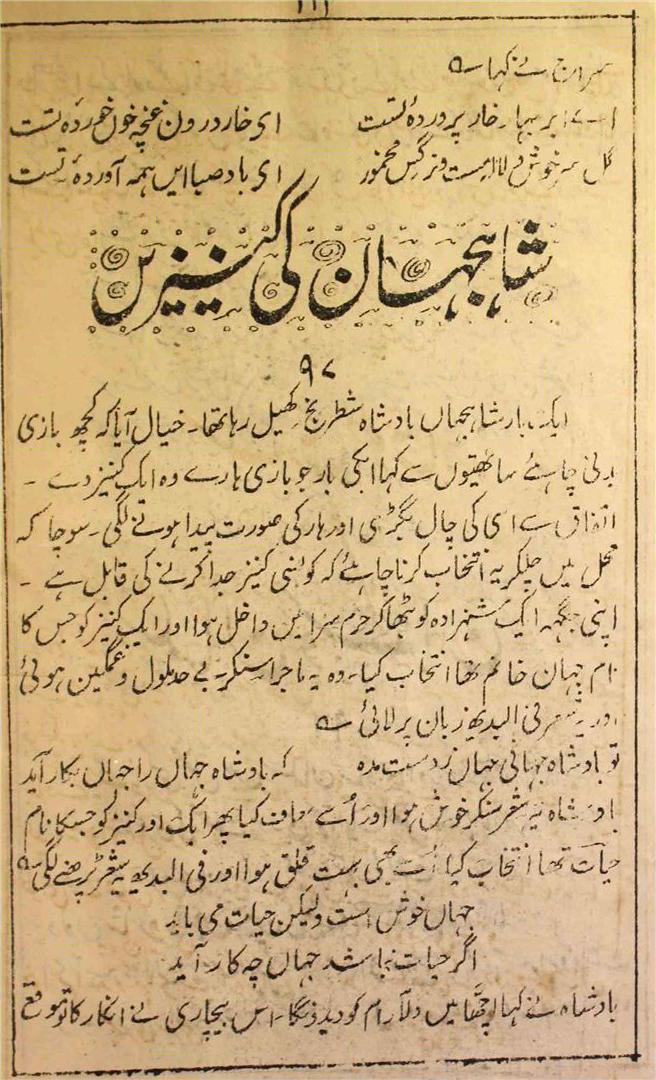 سراج نے کہا ؎
اے ابر بہار خار پروردۂ تست
ای خار درون غنچہ خوں خوردۂ تست
گل سرخوش و لالہ مست و نرگس مخمور
ای باد صبا ایں ہمہ آوردۂ تست
شاہجہان کی کنیزیں
۹۷
ایک بار شاہجہاں بادشاہ شطرنج کھیل رہا تھا۔ خیال آیا کہ کچھ بازی
بدنی چاہئے ساتھیوں سے کہا ابکی بار جو بازی ہارے وہ ایک کنیز دے ۔
اتفاق سے اسی کی چال بگڑی اور ہار کی صورت پیدا ہونے لگی۔ سوچا کہ
محل میں چلکر یہ انتخاب کرنا چاہئے کہ کونسی کنیز جدا کرنے کی قابل ہے ۔
اپنی جگہہ ایک شہزادہ کو بٹھا کر حرم سرا میں داخل ہوا اور ایک کنیز کو جس کا
نام جہان خانم تھا انتخاب کیا۔ وہ یہ ماجرا سنکر بے حد ملول و غمگین ہوئی
اور یہ شعر فی البدیھ زبان پر لائی ؎
تو بادشاہ جہانی جہاں ز دست مدہ
کہ بادشاہ جہاں را جہاں بکار آید
بادشاہ یہ شعر سنکر خوش ہوا اور اُسے معاف کیا پھر ایک اور کنیز کو جسکا نام
حیات تھا انتخاب کیا اُسے بھی بہت قلق ہوا اور فی البدیھ یہ شعر پڑھنے لگی ؎
جہاں خوش است ولیکن حیات می باید
اگر حیات نباشد جہاں چہ کار آید
بادشاہ نے کہا اچھّا میں دلآرام کو دیدونگا۔ اس بیچاری نے انکار کا تو موقع